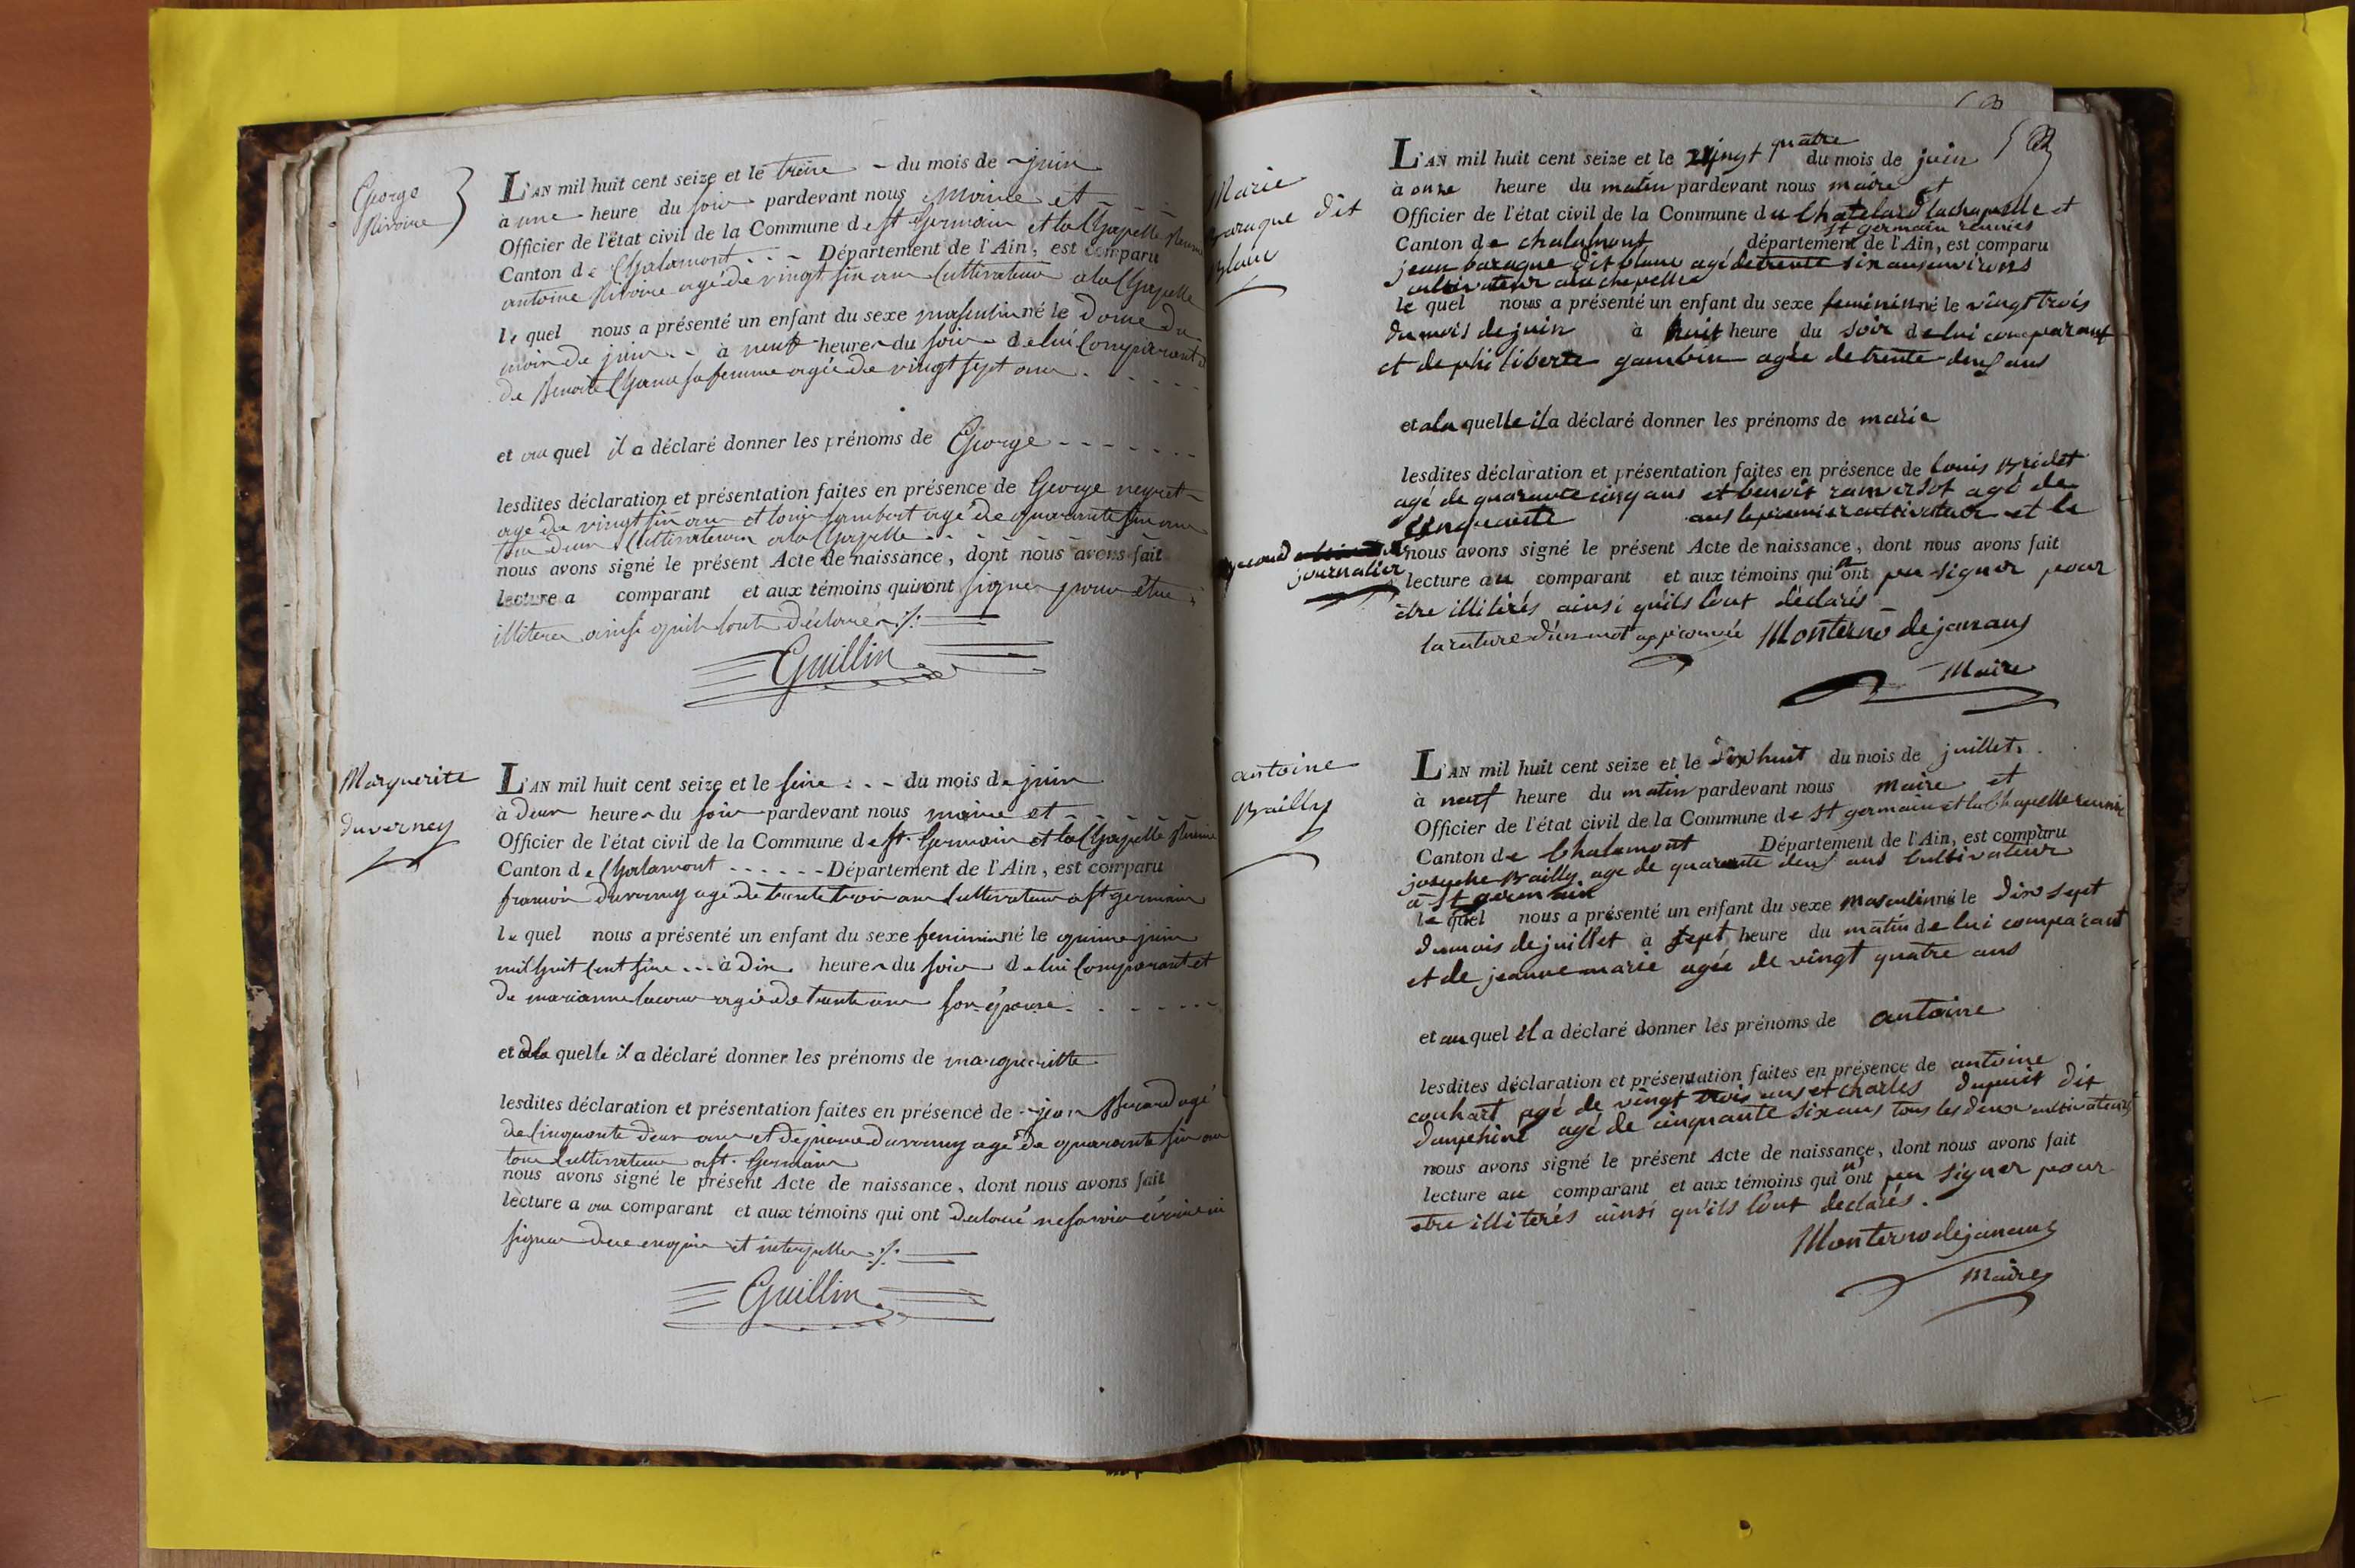 George
Rivoire
L'AN mil huit cent seize et le treize - du mois de juin
à une heure du soir pardevant nous Maire et
Officier de l'état civil de la Commune de st Germain et la Chapelle Reunie
Canton de Chalamont - - - Département de l'Ain, est comparu
antoine Rivoire agé de vingt six ans Cultivateur a la Chapelle
le quel nous a présenté un enfant du sexe masculin né le Douze du
mois de juin - - à neuf heures du soir de lui Comparant et
de Benoite sa femme agée de vingt sept ans
et au quel il a déclaré donner les prénoms de George
lesdites déclaration et présentation faites en présence de George neyret
agé de vingt six ans et louis jambert agé de quarante six ans
tous deux Cultivateurs a la Chapelle
nous avons signé le présent Acte de naissance, dont nous avons fait
lecture a comparant et aux témoins qui nont signer pour etre
illiteres ainsi quils lont Déclaré ./.
Guillin
Marguerite
duverney
L'AN mil huit cent seize et le seize - - du mois de juin
à deux heures du soir pardevant nous maire et
Officier de l'état civil de la Commune de st. Germain et la Chapelle Reunie
Canton de Chalamont - - - Département de l'Ain, est comparu
françois duverney agé de trente trois ans Cultivateur a st germain
le quel nous a présenté un enfant du sexe feminin né le quinze juin
mil huit Cent seize - - à dix heures du soir de lui Comparant et
de marianne lacour agée de trente ans son épouse
et à la quelle il a déclaré donner les prénoms de margueritte
lesdites déclaration et présentation faites en présence de jean Benard agé
de Cinquante deux ans et de pierre duverney agé de quarante six ans
tous Cultivateurs a st. Germain
nous avons signé le présent Acte de naissance, dont nous avons fait
lecture a au comparant et aux témoins qui ont declaré ne savoir écrire ni
signer de ce enquis et interpellés ./.
Guillin
58
Marie
Baraque dit
Blanc
L'AN mil huit cent seize et le vingt quatre du mois de juin
à onze heure du matin pardevant nous maire et
Officier de l'état civil de la Commune du Chatelard lachapelle et
st germain réunies
Canton de chalamont département de l'Ain, est comparu
jean baraque dit blanc agé de trente six ans environs
cultivateur a la chapelle
le quel nous a présenté un enfant du sexe feminin né le vingt trois
du mois de juin à huit heure du soir de lui comparant
et de philiberte gambin agée de trente deux ans
et a la quelle il a déclaré donner les prénoms de marie
lesdites déclaration et présentation faites en présence de louis Bridet
agé de quarante cinq ans et benoit ramersot agé de
cinquante ans le premier cultivateur et le
second
journalier
nous avons signé le présent Acte de naissance, dont nous avons fait
lecture au comparant et aux témoins qui n'ont pu signer pour
être illitirés ainsi qu'ils l'ont déclarés
la rature d'un mot approuvée Monterno de janans
Maire
antoine
Bailly
L'AN mil huit cent seize et le Dix huit du mois de juillet.
à neuf heure du matin pardevant nous Maire et
Officier de l'état civil de la Commune de st germain et la Chapelle reunie
Canton de Chalamont Département de l'Ain, est comparu
josephe Bailly age de quarante deux ans Cultivateur
a St germain
le quel nous a présenté un enfant du sexe masculin né le Dix sept
du mois de juillet à sept heure du matin de lui comparant
et de jeanne marie agée de vingt quatre ans
et au quel il a déclaré donner les prénoms de antoine
lesdites déclaration et présentation faites en présence de antoine
couhart agé de vingt trois ans et charles dupuit dit
dauphiné agé de cinquante six ans tous les deux cultivateurs
nous avons signé le présent Acte de naissance, dont nous avons fait
lecture au comparant et aux témoins qui n'ont pu signer pour
etre illiterés ainsi qu'ils l'ont declarés.
Monterno de janans
Maire